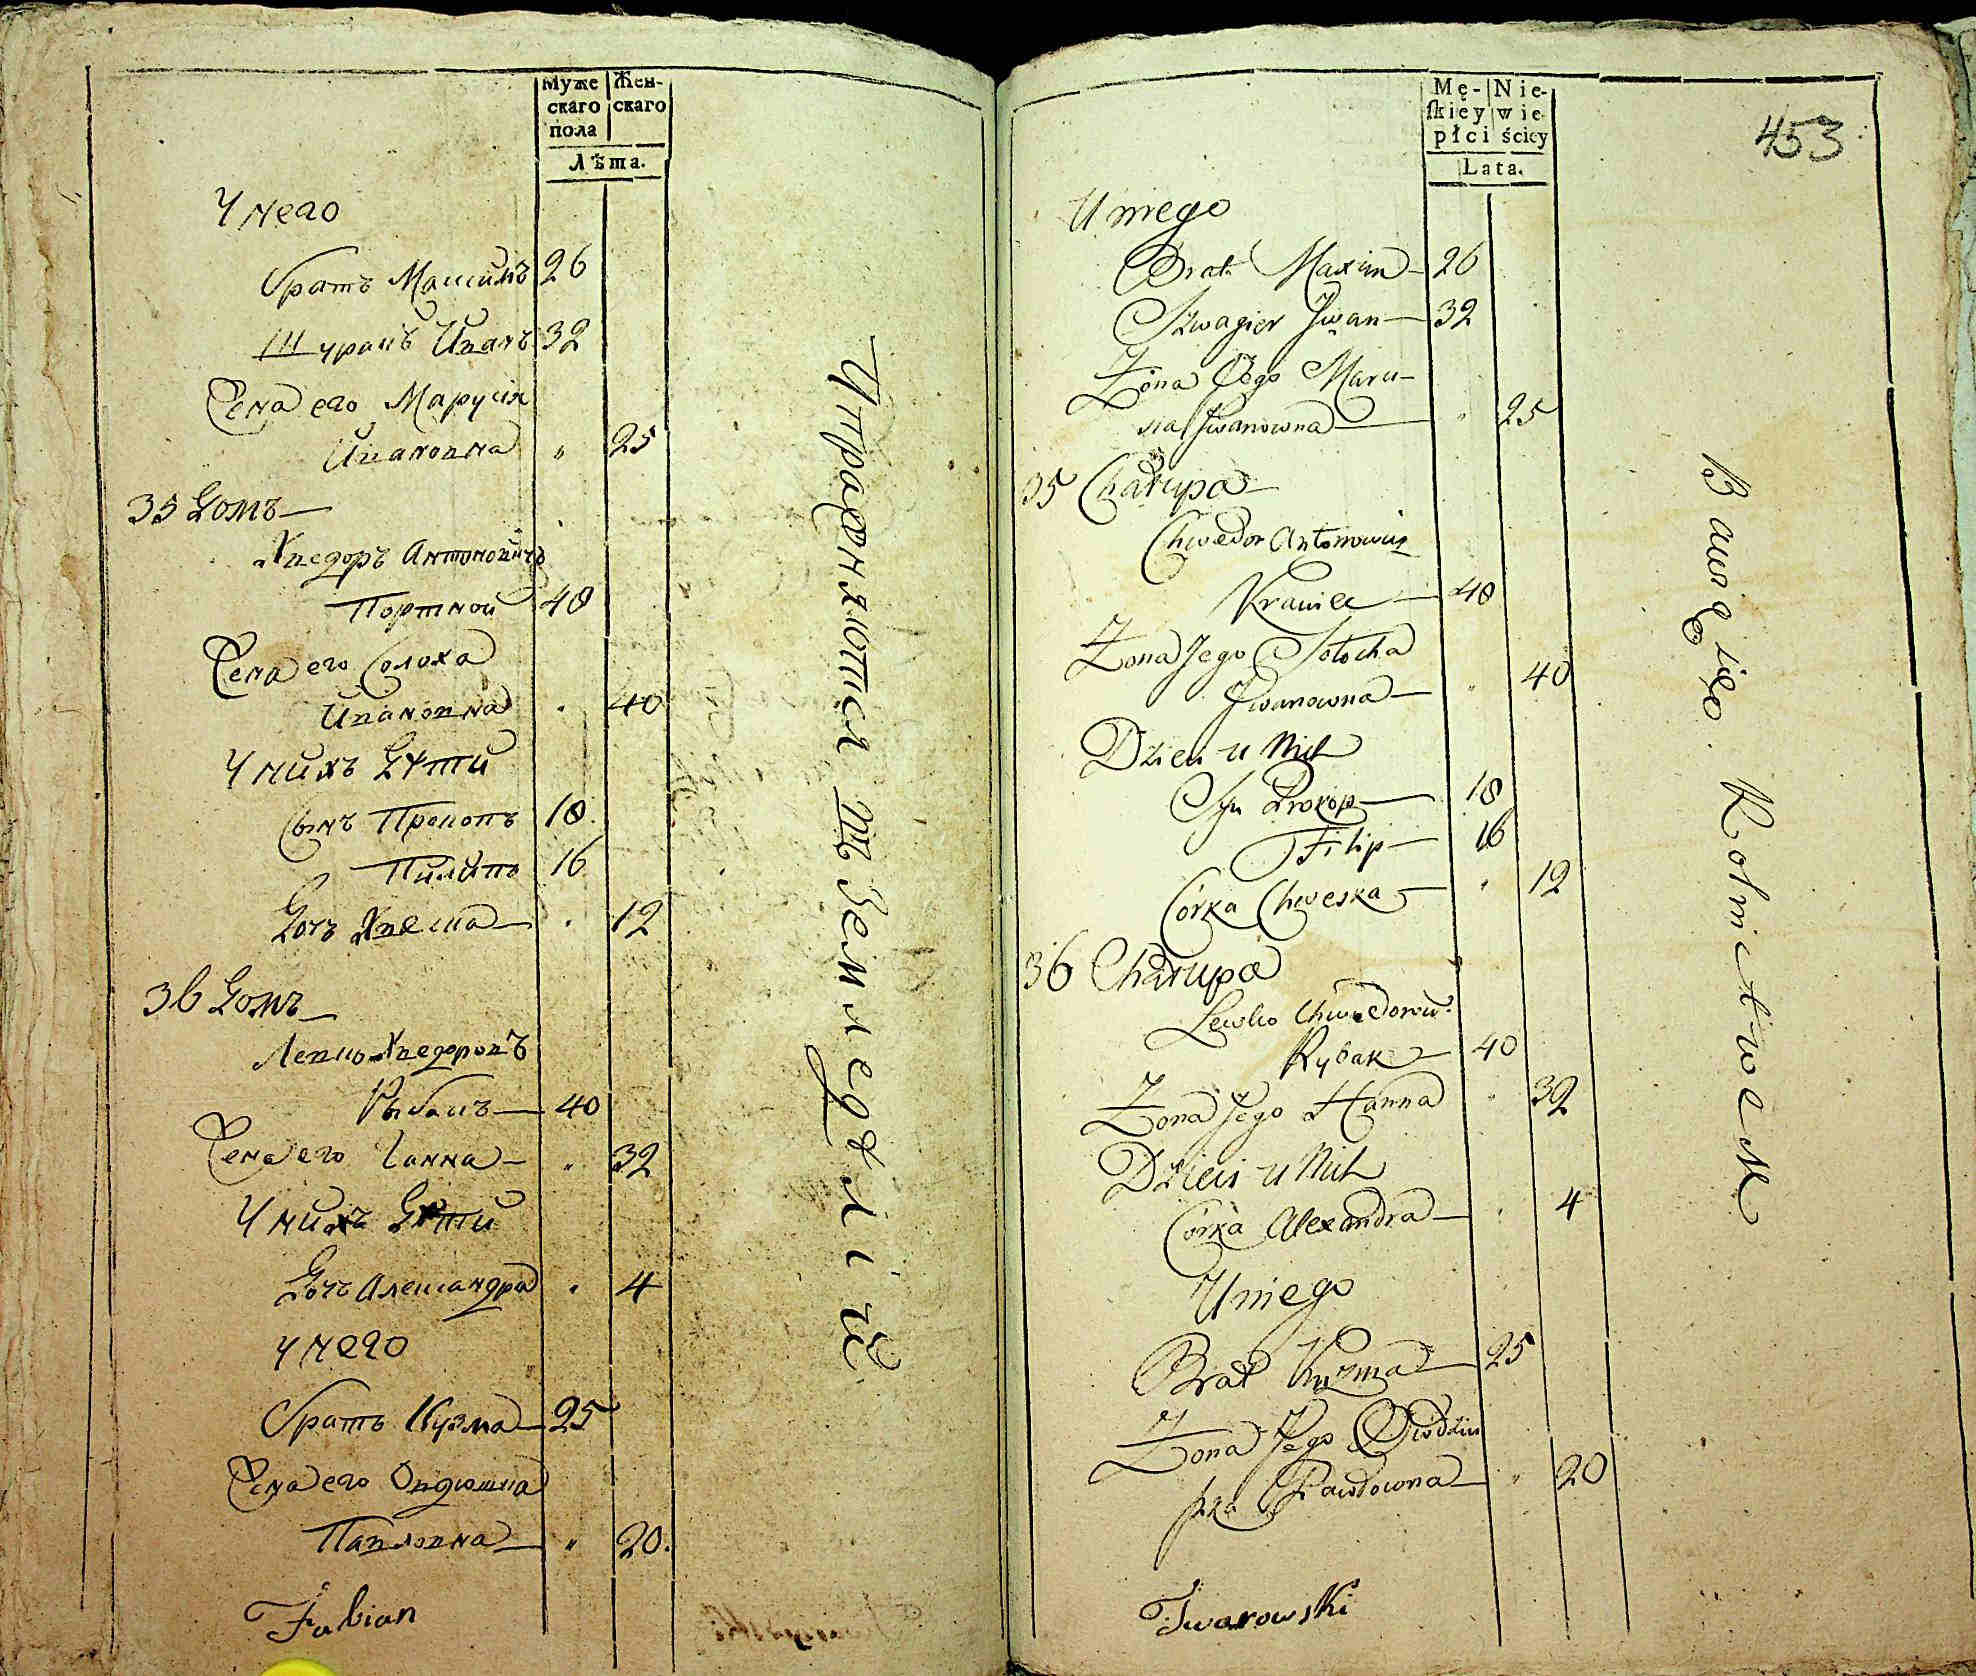 Муже Жен-
скаго скаго
пола
Лѣта.
У него
братъ Максимъ 26
Шуринъ Иванъ 32
Жена его Маруся
Ивановна " 25
35 Домъ
Хведоръ Антоновичъ
Портной 48
Жена его Солоха
Ивановна " 40
У нихъ Дѣти
Сынъ Прокопъ 18
Пилипъ 16
Дочъ Хвеска " 12
36 Домъ
Левко Хведоровъ
Рыбакъ 40
Жена его Ганна " 32
У нихъ Дѣти
Дочъ Александра " 4
У него
братъ Кузма 25
Жена его
Павловна " 20.
Fabian
Упражняются въ Земледѣліи
Mę- Nie-
skiey wie-
płci ściey
Lata.
453
U niego
Brat Maxim 26
Szwagier Jwan 32
Zona Jego Maru-
sia Jwanowna " 25
35 Chałupa
Chwedor Antonowicz
Krawiec 48
Zona Jego Sołocha
Jwanowna " 40
Dzieci u Nich
Syn Prokop 18
Filip 16
Córka Chweska " 12
36 Chałupa
Lewko Chwedorow:
Rybak 40
Zona Jego Hanna " 32
Dzieci u Nich
Córka Alexandra " 4
U niego
Brat Kuzma 25
Zona Jego
Pawłowna " 20
Twarowski
Bawią się Rolnictwem